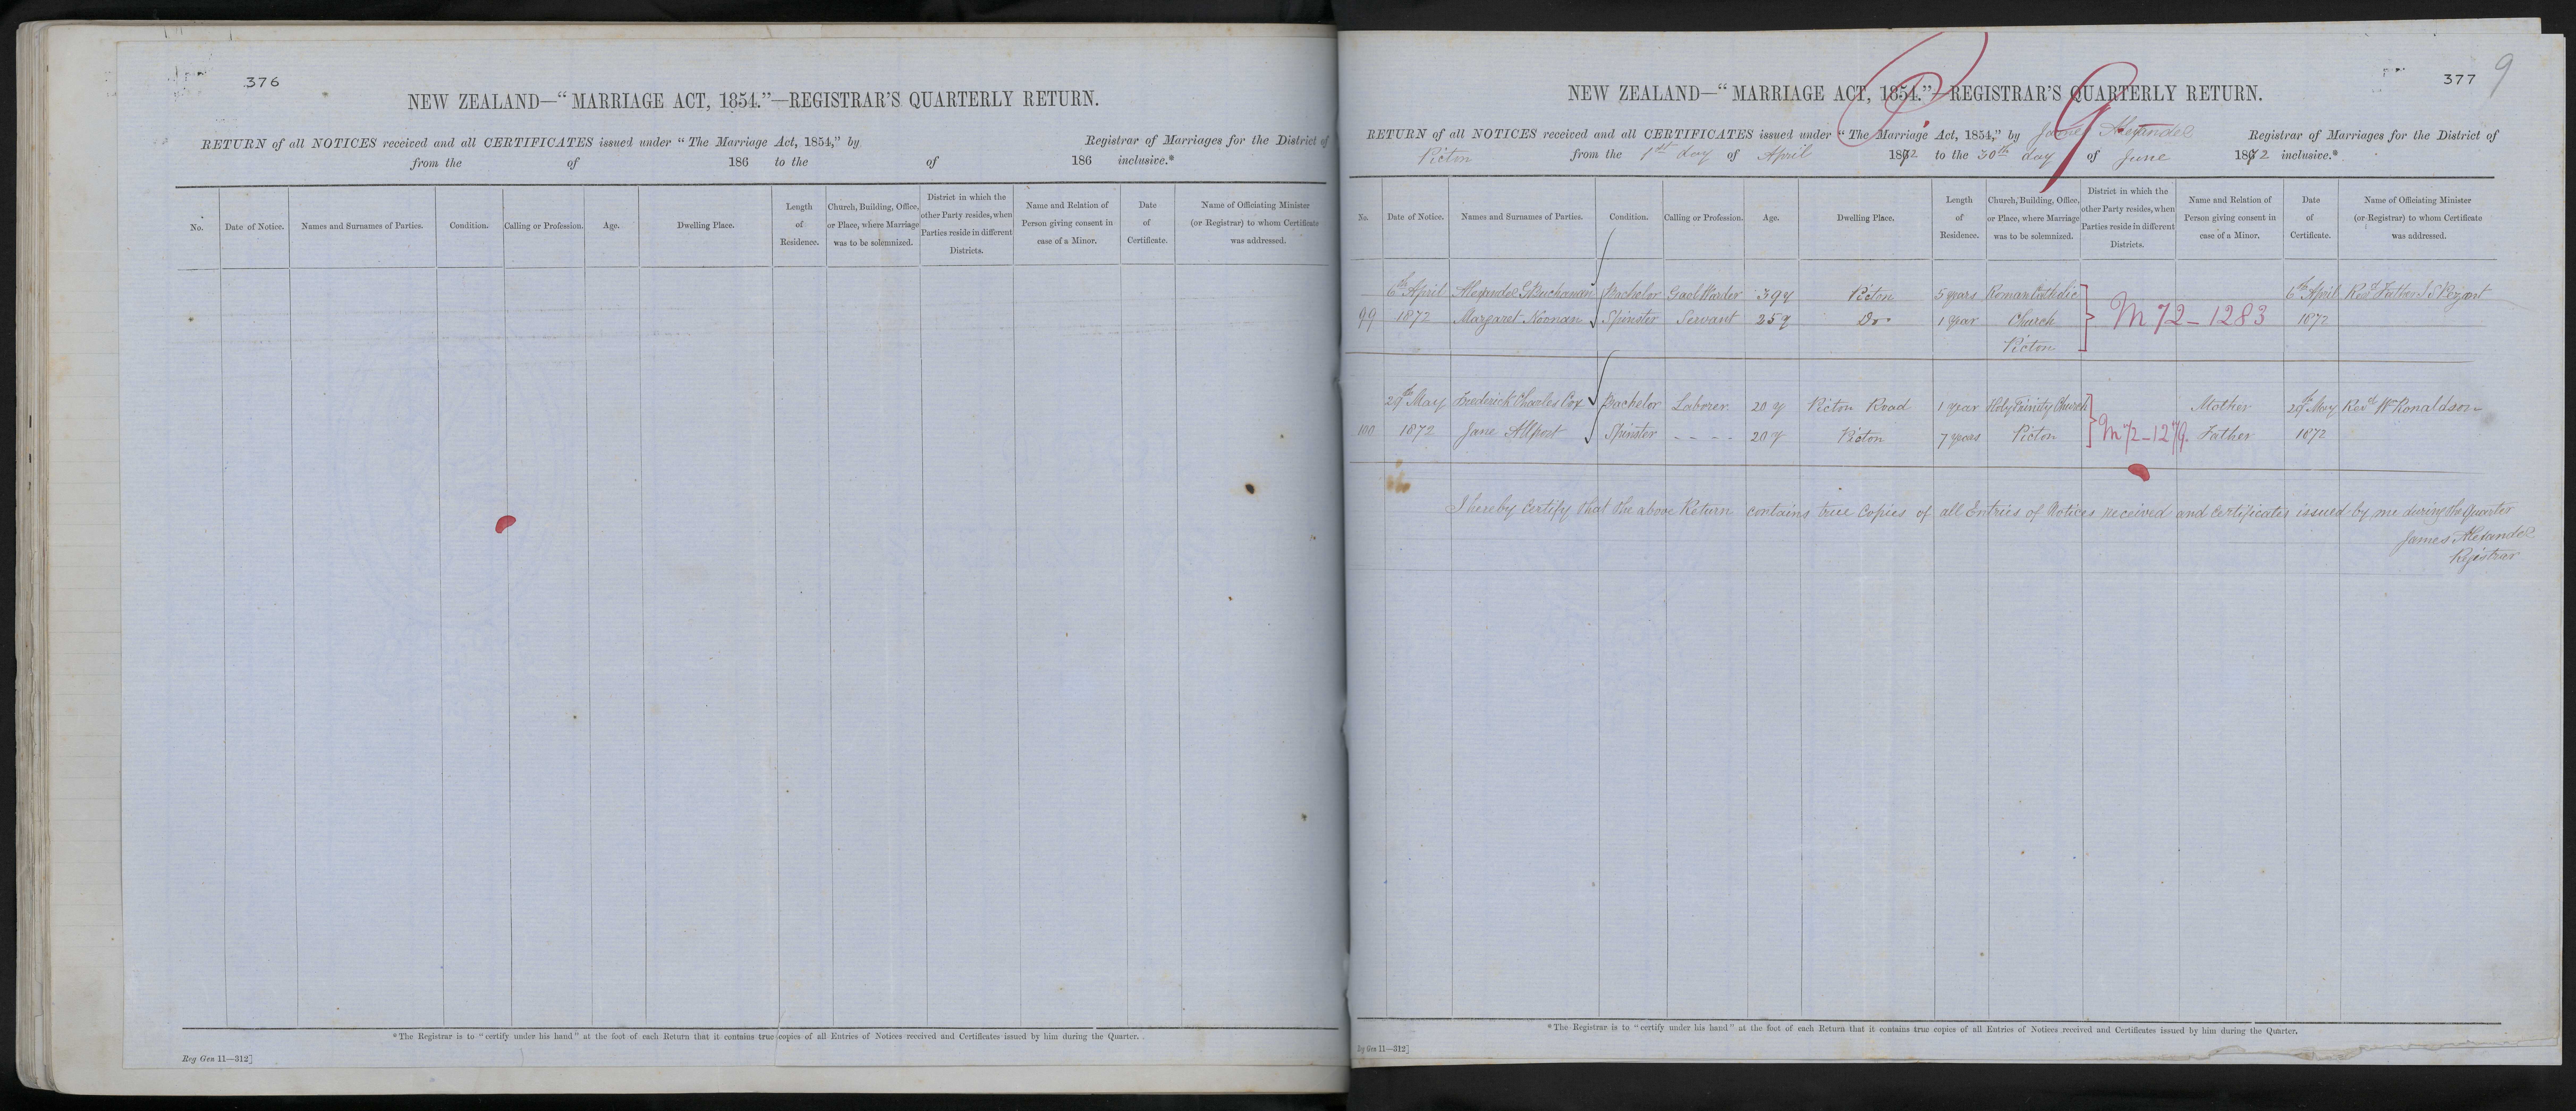 376
NEW ZEALAND—“MARRIAGE ACT, 1854.”—REGISTRAR'S QUARTERLY RETURN.
RETURN of all NOTICES received and all CERTIFICATES issued under “The Marriage Act, 1854,” by Registrar of Marriages for the District of
from the of 186 to the of 186 inclusive.*
No. Date of Notice. Names and Surnames of Parties. Condition. Calling or Profession. Age. Dwelling Place. Length of Residence. Church, Building, Office, or Place, where Marriage was to be solemnized. District in which the other Party resides, when Parties reside in different Districts. Name and Relation of Person giving consent in case of a Minor. Date of Certificate. Name of Officiating Minister (or Registrar) to whom Certificate was addressed.
*The Registrar is to “certify under his hand” at the foot of each Return that it contains true copies of all Entries of Notices received and Certificates issued by him during the Quarter.
Reg Gen 11—312]
377 9
NEW ZEALAND—“MARRIAGE ACT, 1854.”—REGISTRAR'S QUARTERLY RETURN.
RETURN of all NOTICES received and all CERTIFICATES issued under “The Marriage Act, 1854,” by James Alexander Registrar of Marriages for the District of
Picton from the 1st day of April 1872 to the 30th day of June 1872 inclusive.*
No. Date of Notice. Names and Surnames of Parties. Condition. Calling or Profession. Age. Dwelling Place. Length of Residence. Church, Building, Office, or Place, where Marriage was to be solemnized. District in which the other Party resides, when Parties reside in different Districts. Name and Relation of Person giving consent in case of a Minor. Date of Certificate. Name of Officiating Minister (or Registrar) to whom Certificate was addressed.
6th April Alexander Buchanan Bachelor Gaol Warder 39 y Picton 5 years Roman Catholic 6th April Revd Father
99 1872 Margaret Noonan Spinster Servant 25 y Do. 1 year Church M 72-1283 1872
Picton
29th May Frederick Charles Cox Bachelor Laborer 20 y Picton Road 1 year Holy Trinity Church Mother 29th May Revd W Ronaldson
100 1872 Jane Allport Spinster - - - - 20 y Picton 7 years Picton M 72-1279. Father 1872
I hereby certify that the above Return contains true Copies of all Entries of Notices received and Certificates issued by me during the Quarter
James Alexander
Registrar
*The Registrar is to “certify under his hand” at the foot of each Return that it contains true copies of all Entries of Notices received and Certificates issued by him during the Quarter.
Gen 11—312]